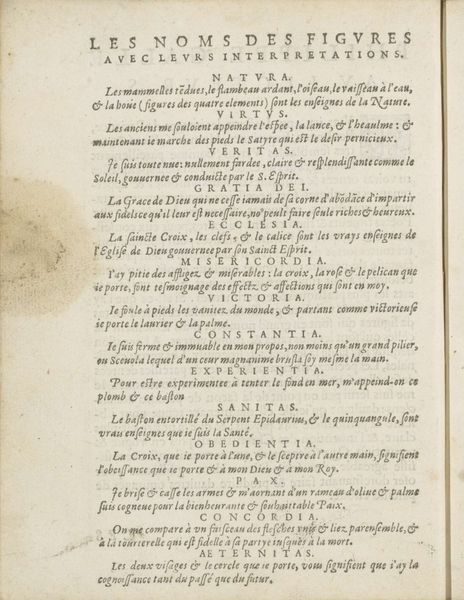 LES NOMS DES FIGVRES
AVEC LEVRS INTERPRETATIONS.
NATVRA.
Les mammelles tẽdues, le flambeau ardant, l'oiseau, le vaisseau à l'eau,
& la houë (figures des quatre elements) sont les enseignes de la Nature.
VIRTVS.
Les anciens me souloient appeindre l'espee, la lance, & l'heaulme : &
maintenant ie marche des pieds le Satyre qui est le desir pernicieux.
VERITAS.
Je suis toute nue: nullement fardee, claire & resplendissante comme le
Soleil, gouuernee & conduicte par le S. Esprit.
GRATIA DEI.
La Grace de Dieu qui ne cesse iamais de sa corne d'abõdãce d'impartir
aux fidelles ce qu'il leur est necessaire, no' peult faire seule riches & heureux.
ECCLESIA.
La saincte Croix, les clefs, & le calice sont les vrays enseignes de
l'Eglise de Dieu gouuernee par son Sainct Esprit.
MISERICORDIA.
I'ay pitie des affligez & miserables : la croix, la rose & le pelican que
ie porte, sont tesmoignage des effectz & affections qui sont en moy.
VICTORIA.
Je foule à pieds les vanitez du monde, & partant comme victorieuse
ie porte le laurier & la palme.
CONSTANTIA.
Je suis ferme & immuable en mon propos, non moins qu'un grand pilier,
ou Sceuola lequel d'un cœur magnanime brusla soy mesme la main.
EXPERIENTIA.
Pour estre experimentee à tenter le fond en mer, m'appeind-on ce
plomb & ce baston
SANITAS.
Le baston entortillé du Serpent Epidaurius, & le quinquangule, sont
vrais enseignes que ie suis la Santé.
OBEDIENTIA.
La Croix, que ie porte à l'une, & le sceptre à l'autre main, signifient
l'obeissance que ie porte & à mon Dieu & à mon Roy.
PAX.
Je brise & casse les armes & m'aornant d'un rameau d'oliue & palme
suis cogneue pour la bienheurante & souhaittable Paix.
CONCORDIA.
On me compare à vn faisceau des flesches vnis & liez parensemble, &
à la tourterelle qui est fidelle à sa partye iusques à la mort.
AETERNITAS.
Les deux visages & le cercle que ie porte, vous signifient que i'ay la
cognoissance tant du passé que du futur.